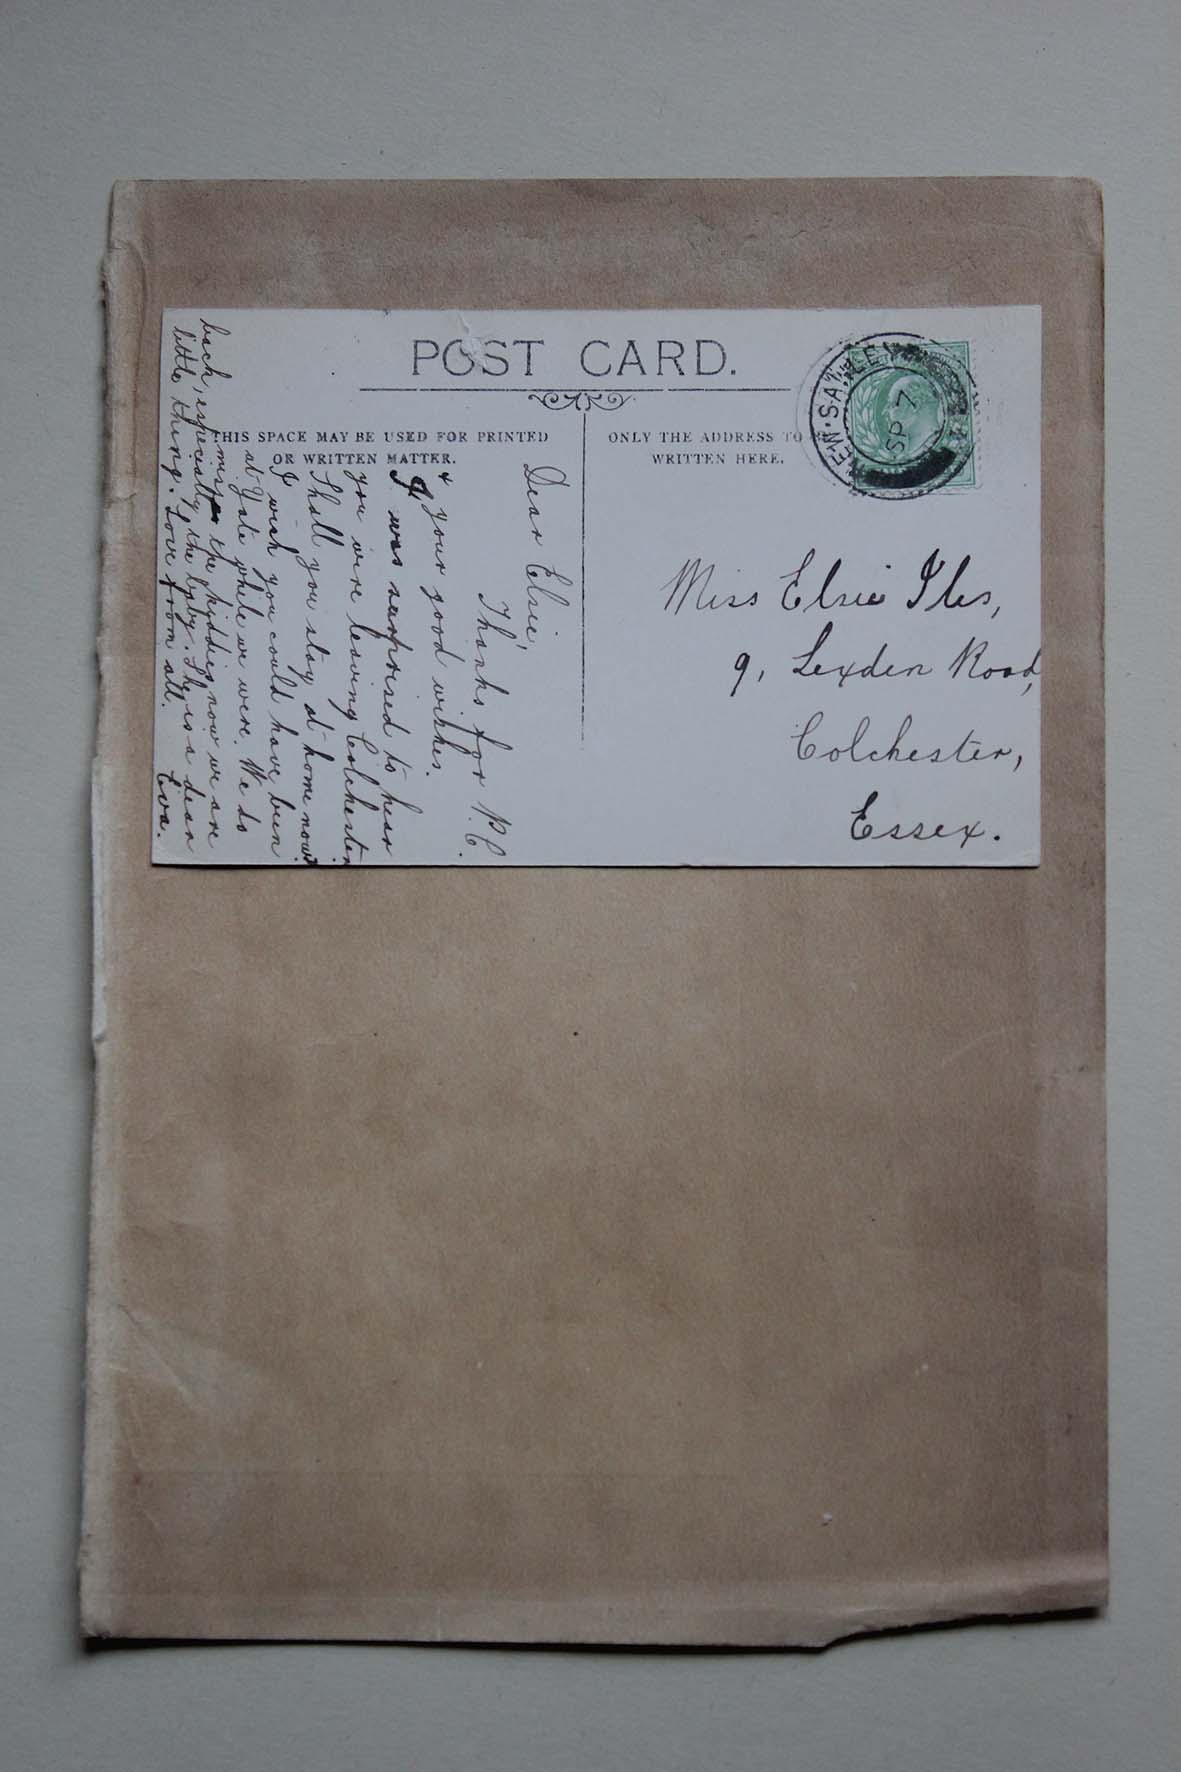 POST CARD.
THIS SPACE MAY BE USED FOR PRINTED
OR WRITTEN MATTER.
ONLY THE ADDRESS TO
WRITTEN HERE.
SP 7
Miss Elsie Iles,
9, Lexden Road,
Colchester,
Essex.
Dear Elsie,
Thanks for P.C.
& your good wishes.
I was surprised to hear
you were leaving Colchester.
Shall you stay at home now?
I wish you could have been
at Yate while we were. We do
miss the kiddies now we are
back, especially the baby. She is a dear
little thing. Love from all.
Eva.